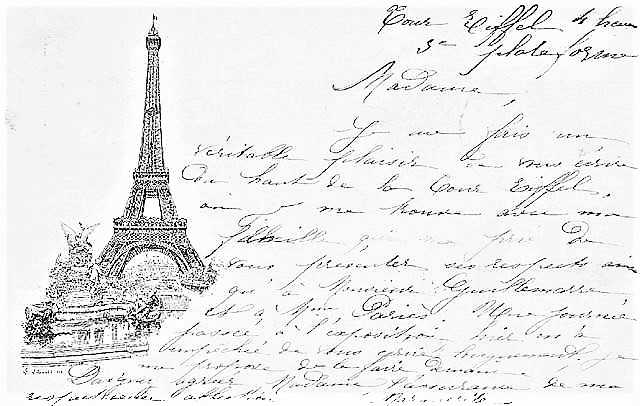 Tour Eiffel 4 heures
3e plateforme
Madame,
Je me fais un
véritable plaisir de vous écrire
du haut de la Tour Eiffel,
où je me trouve avec ma
famille qui me prie de
vous présenter ses respects ainsi
qu'à Monsieur Guillemarre
et à Mme Paris. Une journée
passée à l'exposition hier m'a
empêché de vous écrire longuement, je
me propose de le faire demain.
Daignez agréer Madame l'assurance de ma
respectueuse affection